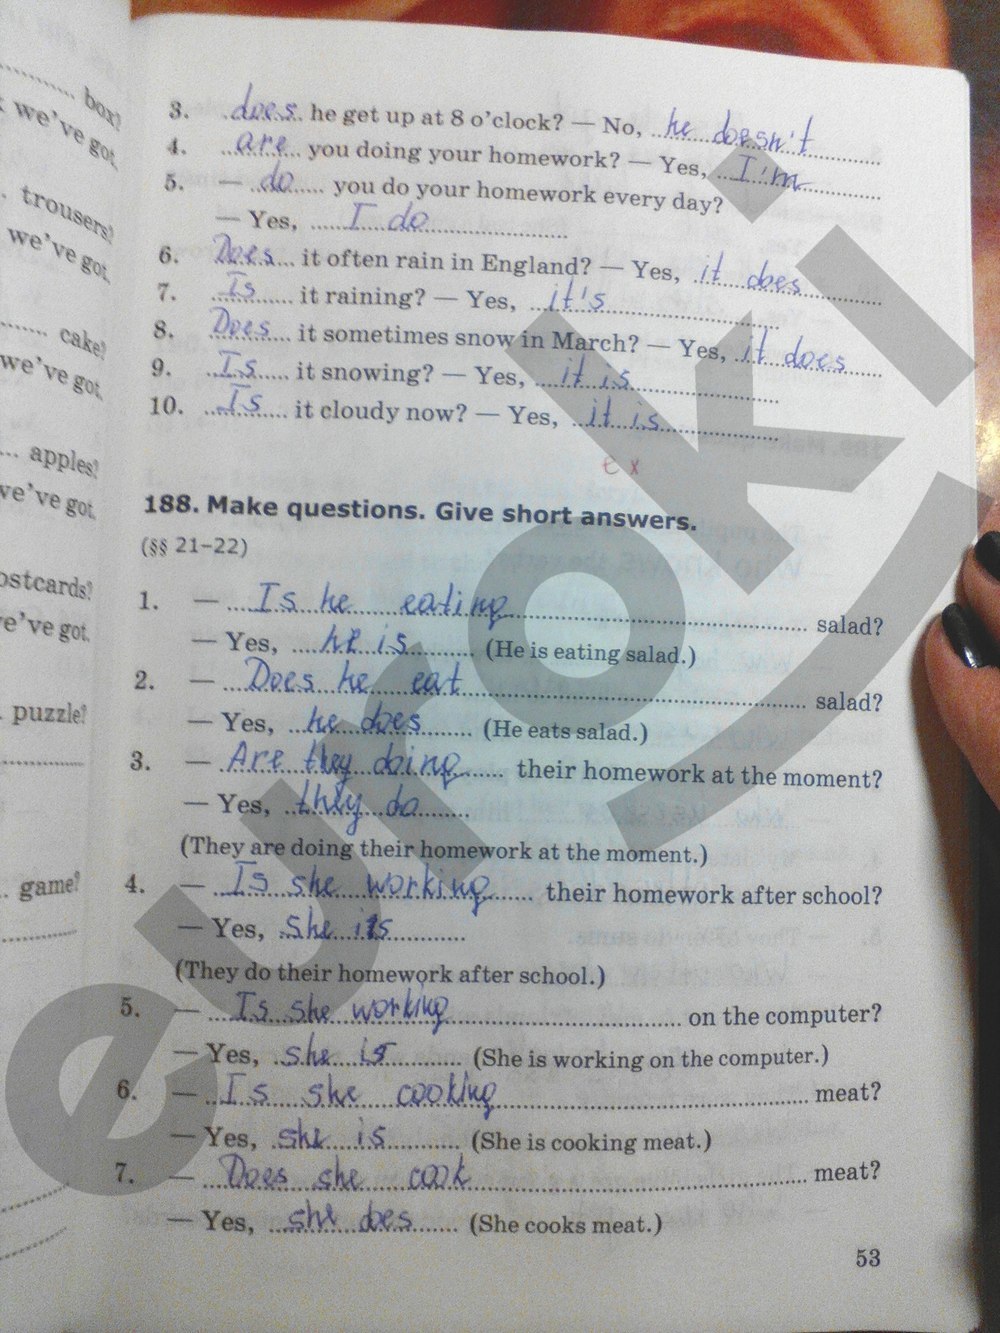 box?
we've got.
trousers?
we've got.
cake?
we've got.
apples?
we've got.
postcards?
we've got.
puzzle?
game?
3. does he get up at 8 o'clock? — No, he doesn't
4. are you doing your homework? — Yes, I'm
5. — do you do your homework every day?
— Yes, I do
6. Does it often rain in England? — Yes, it does
7. Is it raining? — Yes, it's
8. Does it sometimes snow in March? — Yes, it does
9. Is it snowing? — Yes, it is
10. Is it cloudy now? — Yes, it is
188. Make questions. Give short answers.
(§§ 21–22)
1. — Is he eating salad?
— Yes, he is (He is eating salad.)
2. — Does he eat salad?
— Yes, he does (He eats salad.)
3. — Are they doing their homework at the moment?
— Yes, they do
(They are doing their homework at the moment.)
4. — Is she working their homework after school?
— Yes, she is
(They do their homework after school.)
5. — Is she working on the computer?
— Yes, she is (She is working on the computer.)
6. — Is she cooking meat?
— Yes, she is (She is cooking meat.)
7. — Does she cook meat?
— Yes, she does (She cooks meat.)
53
euroki